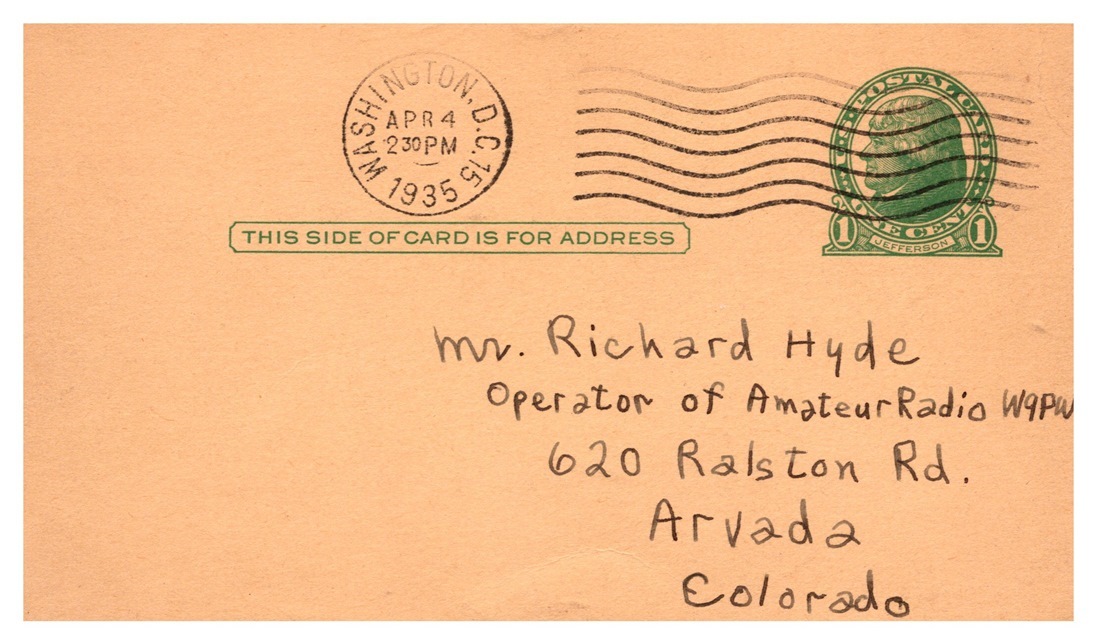 WASHINGTON, D.C. 15
APR 4
2 30 PM
1935
U.S. POSTAL CARD
ONE CENT
1 JEFFERSON 1
THIS SIDE OF CARD IS FOR ADDRESS
Mr. Richard Hyde
Operator of Amateur Radio W9PW
620 Ralston Rd.
Arvada
Colorado